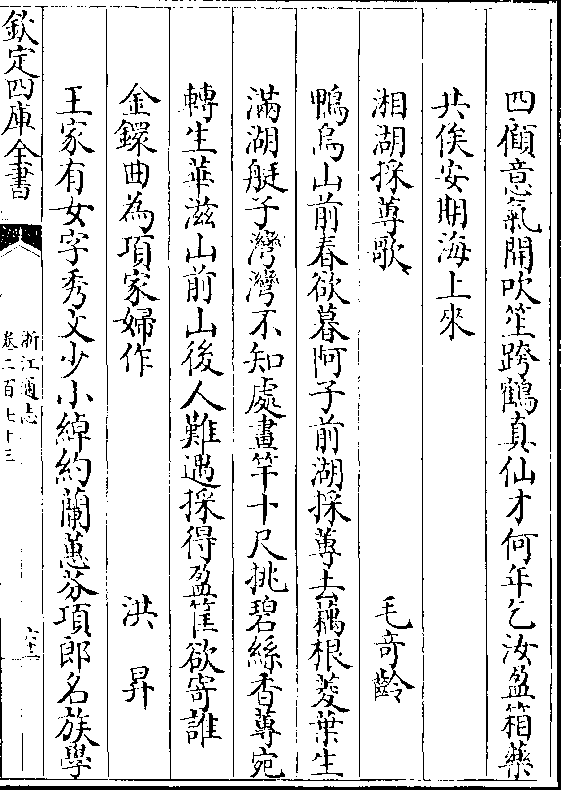 四顧意氣開吹笙跨鶴真仙才何年乞汝盈箱藥
共俟安期海上來
湘湖採蓴歌 毛奇齡
鴨烏山前春欲暮阿子前湖採蓴去藕根菱葉生
滿湖艇子灣灣不知處畫竿十尺挑碧絲香蓴宛
轉生華滋山前山後人難遇採得盈筐欲寄誰
金鐶曲為項家婦作 洪昇
王家有女字秀文少小綽約蘭蕙芬項郎名族學
欽定四庫全書
浙江通志
卷二百七十三
六十三